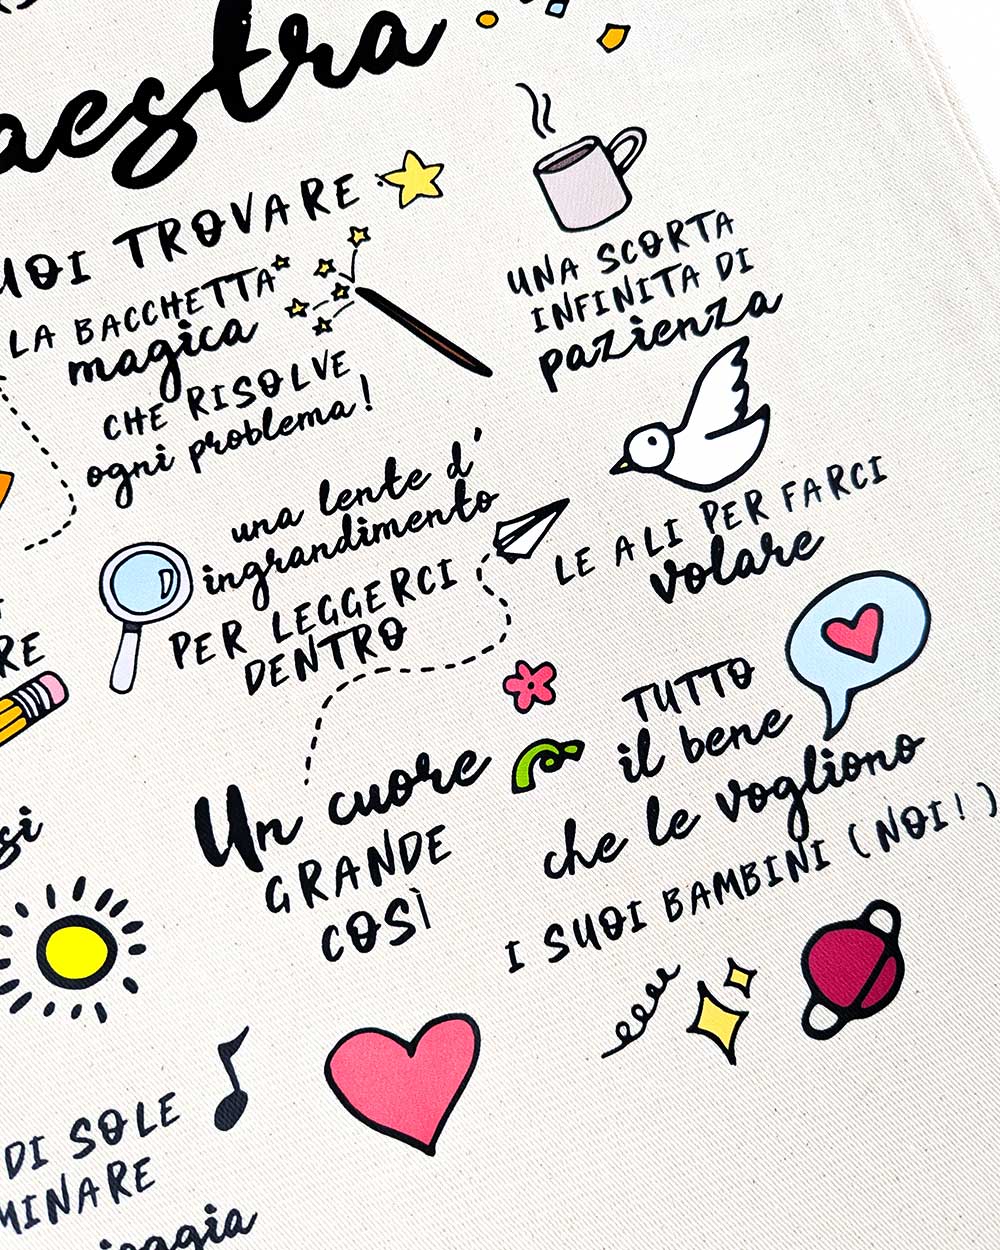 TROVARE
LA BACCHETTA
magica
CHE RISOLVE
ogni problema!
UNA SCORTA
INFINITA DI
pazienza
una lente d'
ingrandimento
PER LEGGERCI
DENTRO
LE ALI PER FARCI
volare
Un cuore
GRANDE
COSÌ
TUTTO
il bene
che le vogliono
I SUOI BAMBINI (NOI!)
DI SOLE